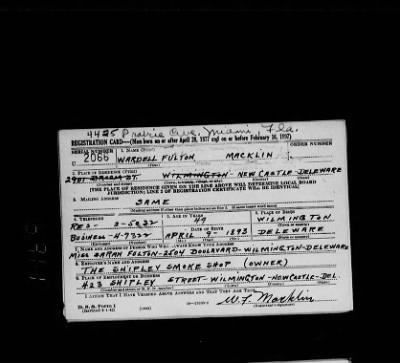 4425 Prairie Ave, Miami Fla.
REGISTRATION CARD—(Men born on or after April 28, 1877 and on or before February 16, 1897)
SERIAL NUMBER 1. NAME (Print) ORDER NUMBER
U 2066 WARDELL FULTON MACKLIN
2. PLACE OF RESIDENCE (Print)
2401 ST. WILMINGTON - NEW CASTLE - DELEWARE
(THE PLACE OF RESIDENCE GIVEN ON THE LINE ABOVE WILL DETERMINE LOCAL BOARD
JURISDICTION; LINE 2 OF REGISTRATION CERTIFICATE WILL BE IDENTICAL)
3. MAILING ADDRESS
SAME
4. TELEPHONE 5. AGE IN YEARS 6. PLACE OF BIRTH
49 WILMINGTON
DATE OF BIRTH
4-7322 APRIL 9- 1893 DELEWARE
7. NAME AND ADDRESS OF PERSON WHO WILL ALWAYS KNOW YOUR ADDRESS
MISS SARAH FULTON-2504 BOULAVARD-WILMINGTON-DELEWARE
8. EMPLOYER'S NAME AND ADDRESS
THE SHIPLEY SMOKE SHOP (OWNER)
9. PLACE OF EMPLOYMENT OR BUSINESS
423 SHIPLEY STREET-WILMINGTON-NEWCASTLE-DEL.
I AFFIRM THAT I HAVE VERIFIED ABOVE ANSWERS AND THAT THEY ARE TRUE.
D. S. S. Form 1
W. F. Macklin